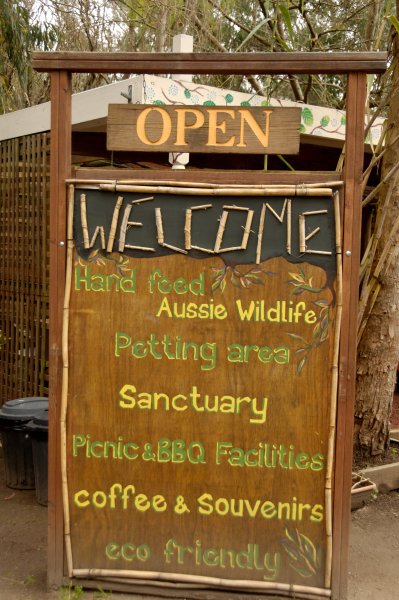 OPEN
WELCOME
Hand feed
Aussie Wildlife
Petting area
Sanctuary
Picnic & BBQ Facilities
coffee & Souvenirs
eco friendly